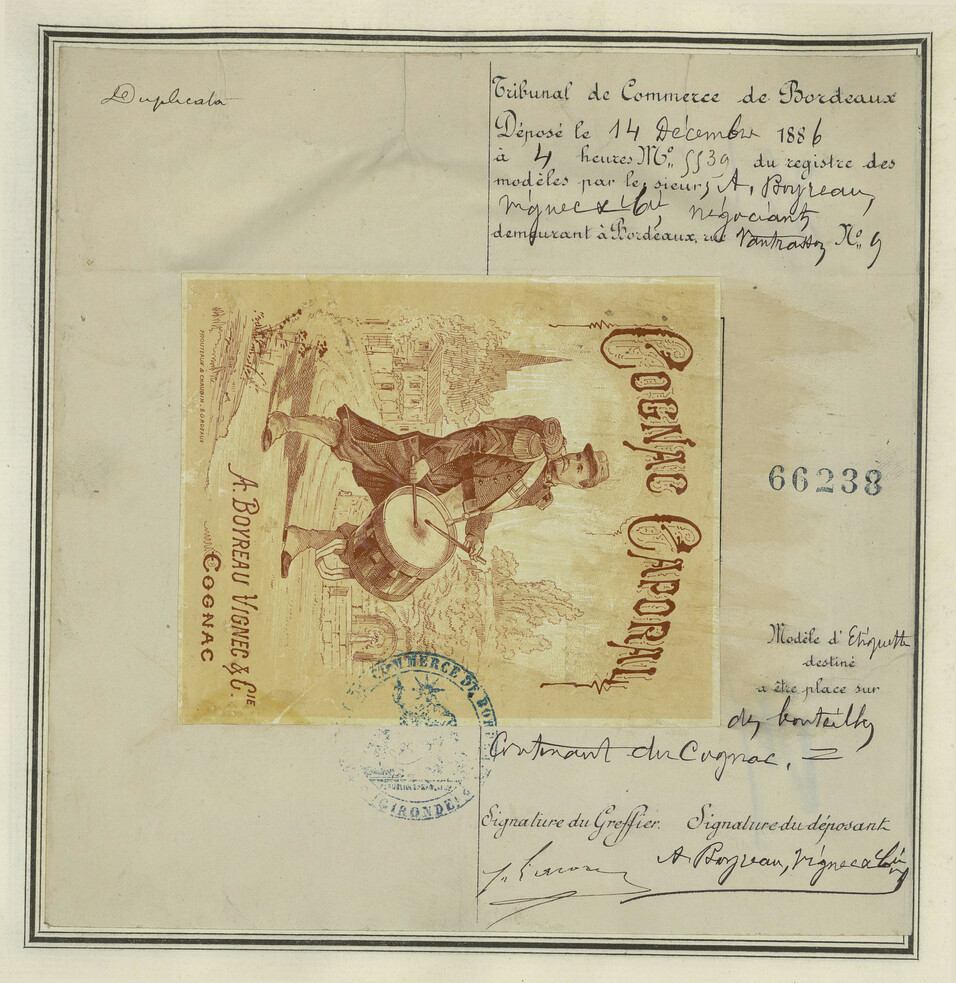 Duplicata
Tribunal de Commerce de Bordeaux
Déposé le 14 Décembre 1886
à 4 heures No. 5539 du registre des
modèles par le sieurs A. Boyreau,
Vignec & Cie, négociants
demeurant à Bordeaux, rue Vantrasson No. 9
COGNAC CAPORAL
A. BOYREAU VIGNEC & CIE
COGNAC
66238
Modèle d'Etiquette
destiné
a être place sur
des bouteilles
Contenant du Cognac. =
COMMERCE DE BORD
GIRONDE
Signature du Greffier. Signature du déposant
A Boyreau, Vignec & Cie